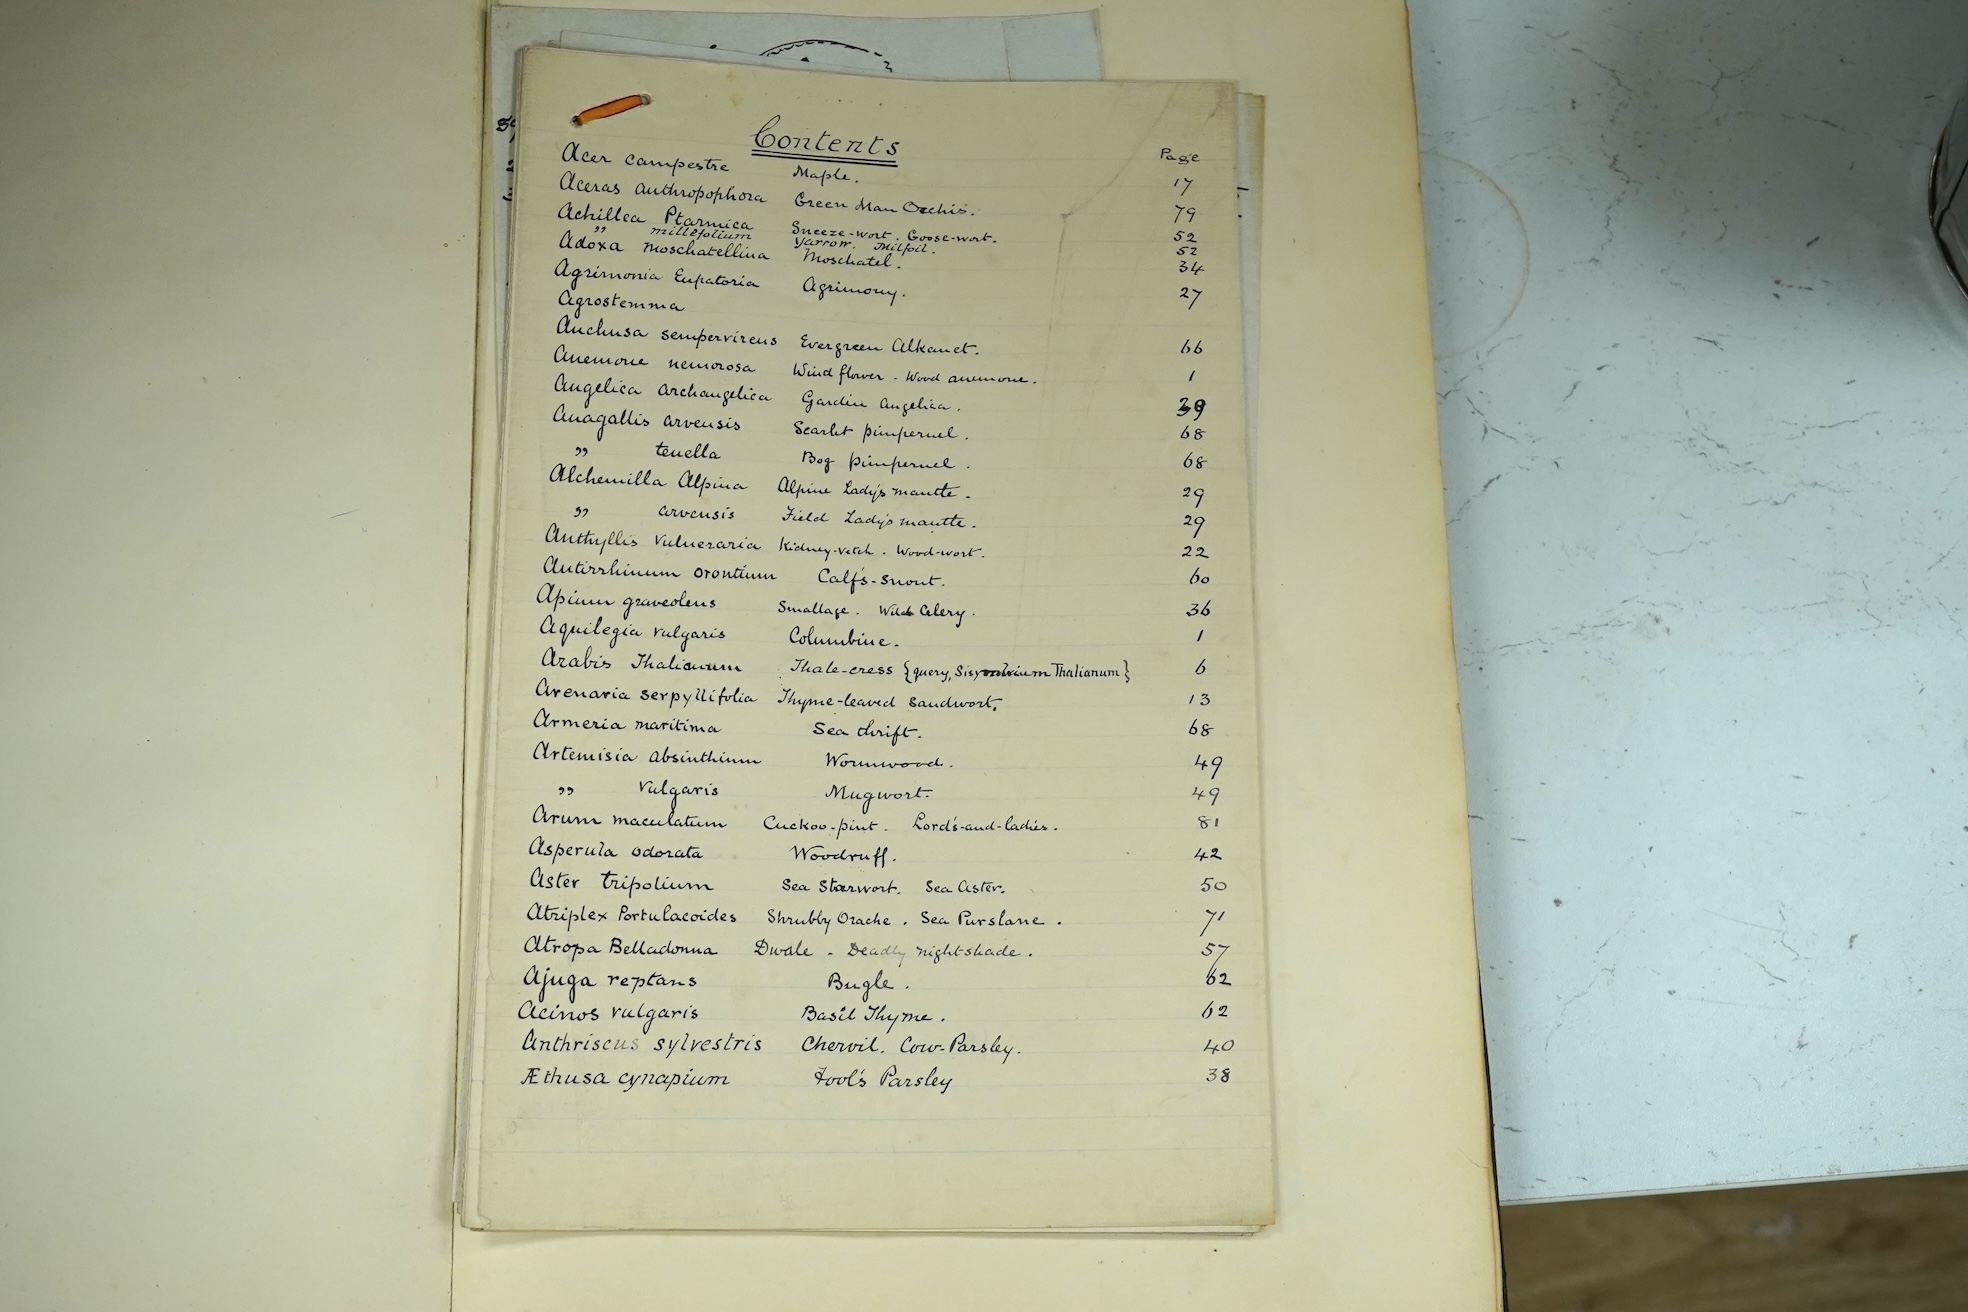 Contents
Page
Acer campestre Maple. 17
Aceras anthropophora Green Man Orchis. 79
Achillea Ptarmica Sneeze-wort. Goose-wort. 52
" millefolium Yarrow. Milfoil. 52
Adoxa moschatellina Moschatel. 34
Agrimonia Eupatoria Agrimony. 27
Agrostemma
Anchusa sempervirens Evergreen Alkanet. 66
Anemone nemorosa Wind flower. Wood anemone. 1
Angelica archangelica Garden angelica. 39
Anagallis arvensis Scarlet pimpernel. 68
" tenella Bog pimpernel. 68
Alchemilla Alpina Alpine Lady's mantle. 29
" arvensis Field Lady's mantle. 29
Anthyllis vulneraria Kidney-vetch. Wood-wort. 22
Antirrhinum orontium Calf's-snout. 60
Apium graveolens Smallage. Wild Celery. 36
Aquilegia vulgaris Columbine. 1
Arabis Thalianum Thale-cress {query, Sisymbrium Thalianum} 6
Arenaria serpyllifolia Thyme-leaved sandwort. 13
Armeria maritima Sea thrift. 68
Artemisia absinthium Wormwood. 49
" vulgaris Mugwort. 49
Arum maculatum Cuckoo-pint. Lord's-and-ladies. 81
Asperula odorata Woodruff. 42
Aster tripolium Sea Starwort. Sea Aster. 50
Atriplex Portulacoides Shrubby Orache. Sea Purslane. 71
Atropa Belladonna Dwale - Deadly nightshade. 57
Ajuga reptans Bugle. 62
Acinos vulgaris Basil Thyme. 62
Anthriscus sylvestris Chervil. Cow-Parsley. 40
Æthusa cynapium Fool's Parsley 38